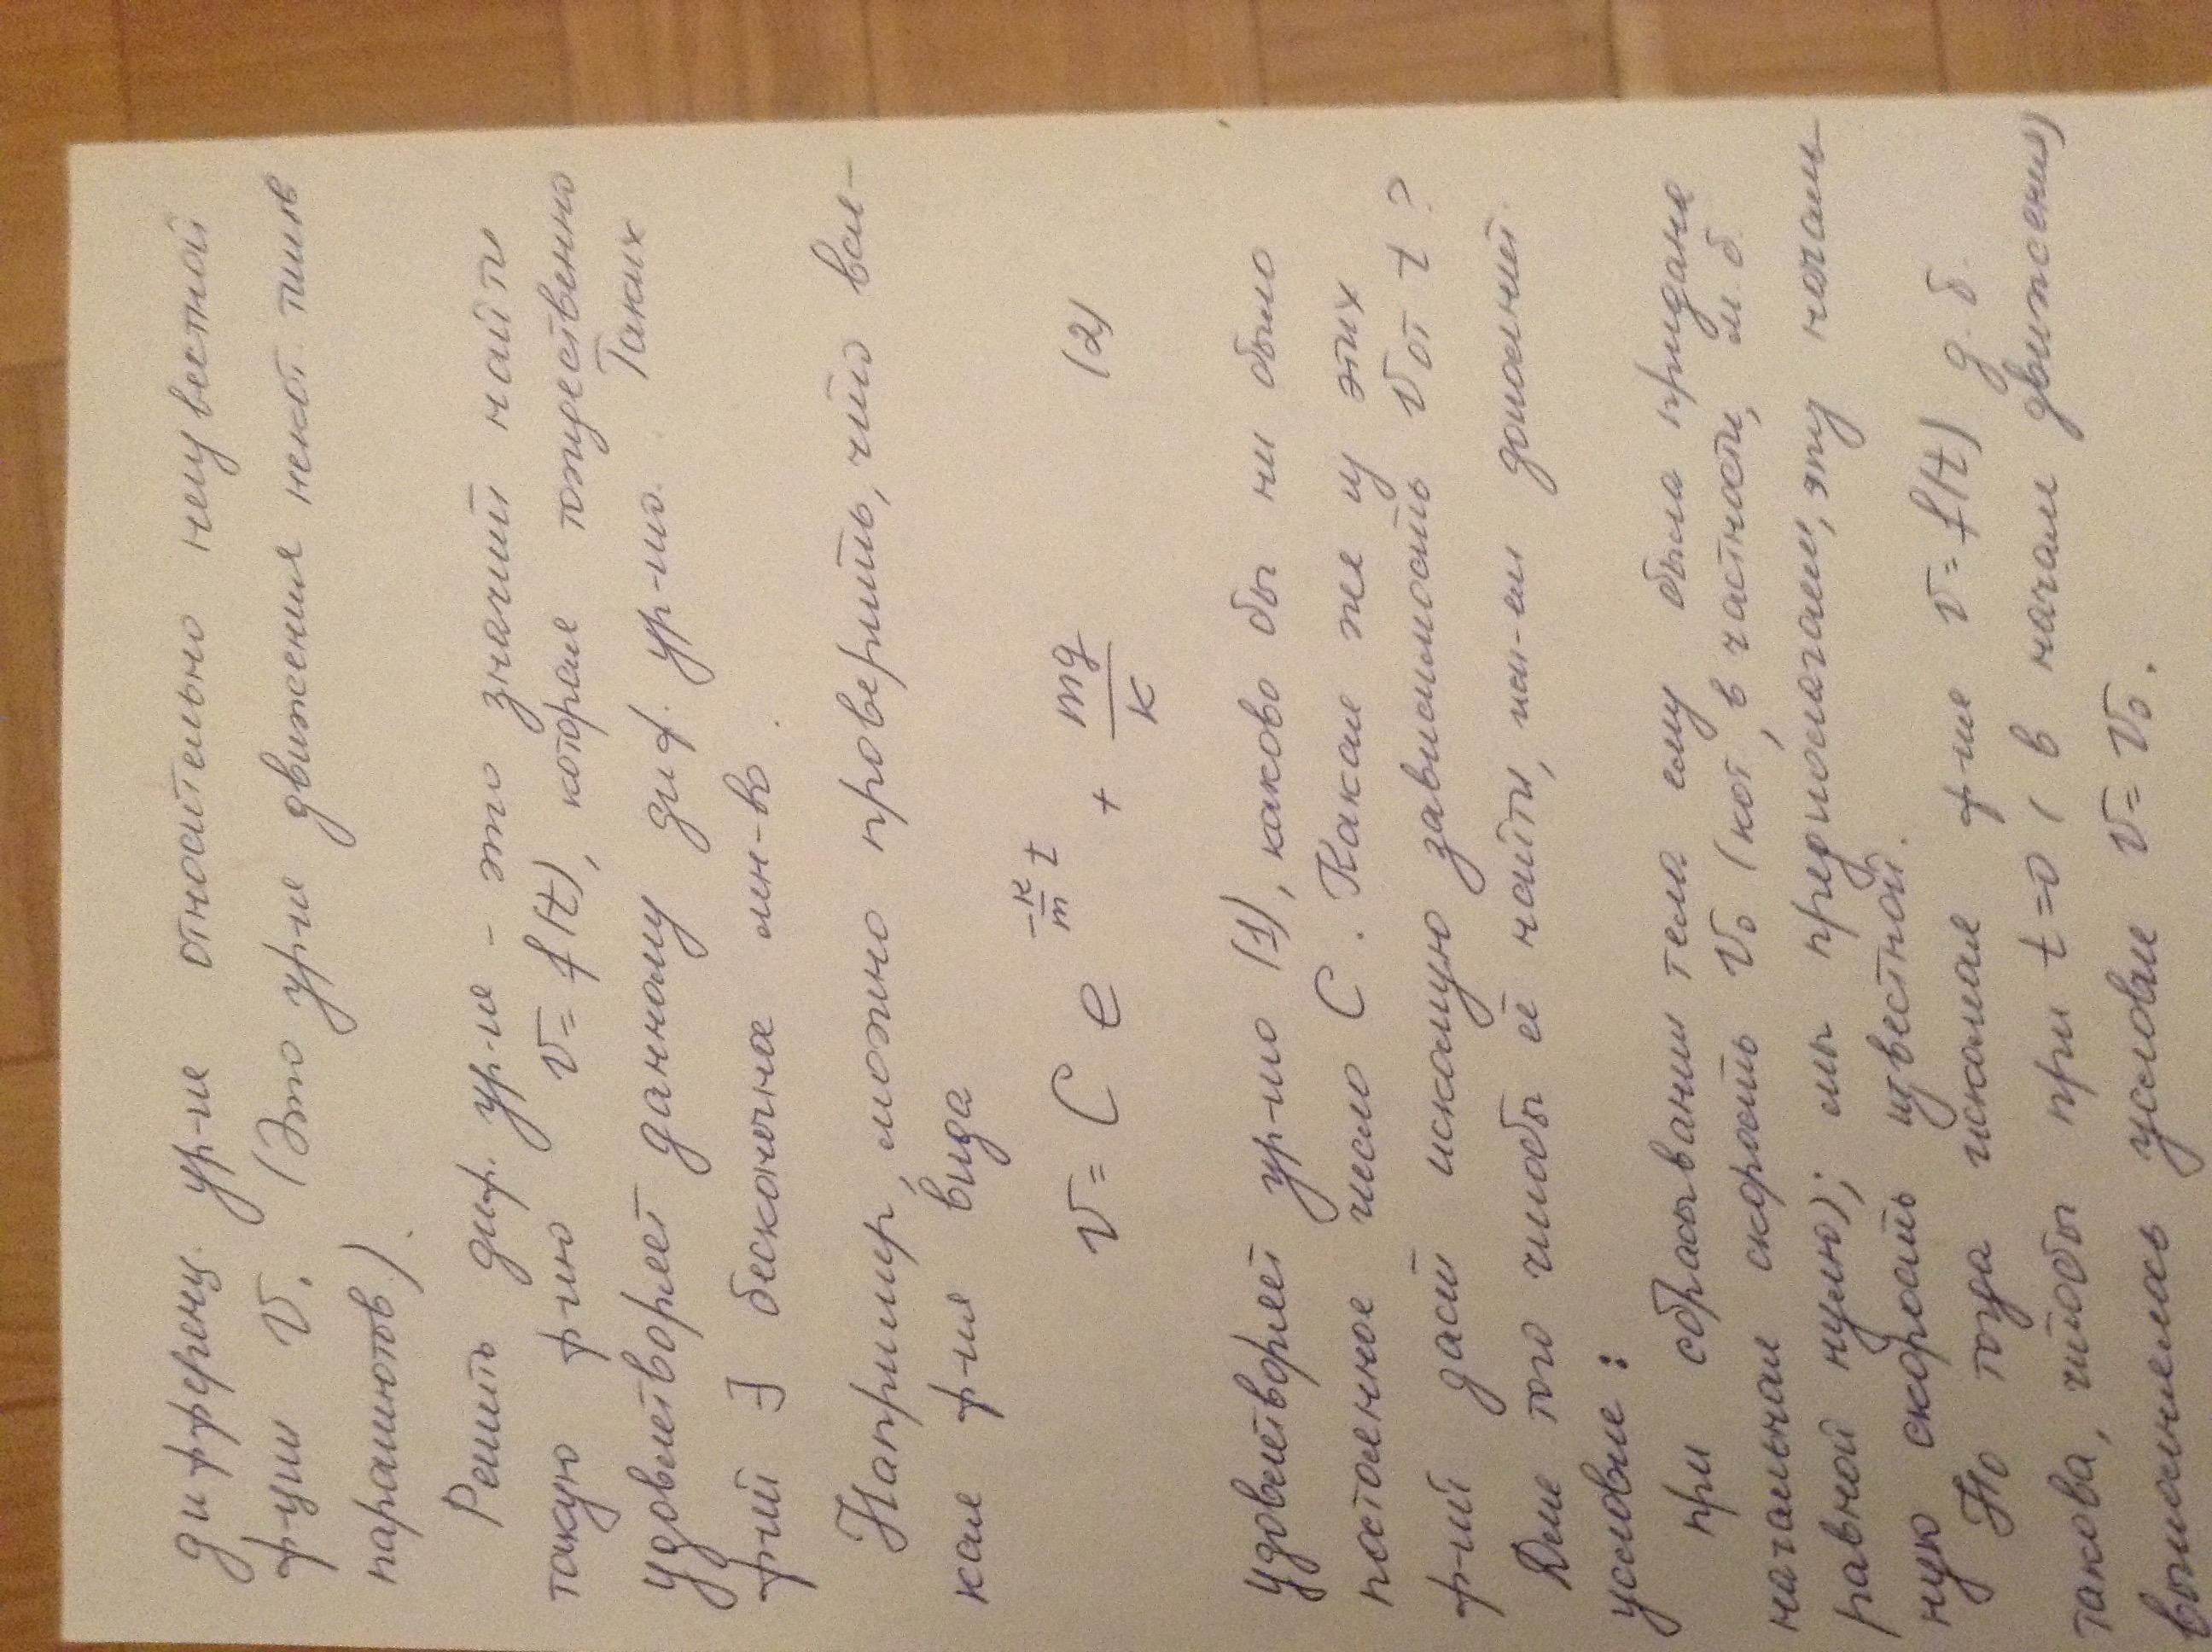 дифференц. ур-ие относительно неизвестной
ф-ции v. (Это ур-ие движения некот. типов
парашютов).
Решить диф. ур-ие - это значит найти
такую ф-ию v = f(t), которая тождественно
удовлетворяет данному диф. ур-ию. Таких
ф-ий ∃ бесконечное мн-во.
Например, можно проверить, что вся-
кая ф-ия вида
v = C e^{-\frac{k}{m} t} + \frac{mg}{k} (2)
удовлетворяет ур-ию (1), каково бы ни было
постоянное число C. Какая же из этих
ф-ий даст искомую зависимость v от t?
Для того чтобы её найти, исп-ем дополнит.
условие:
при сбрасывании тела ему была придана
начальная скорость v₀ (кот, в частности, м. б.
равной нулю); мы предполагаем, эту началь-
ную скорость известной.
Но тогда искомая ф-ия v = f(t) д. б.
такова, чтобы при t=0 (в начале движения)
выполнялось условие v = v₀.